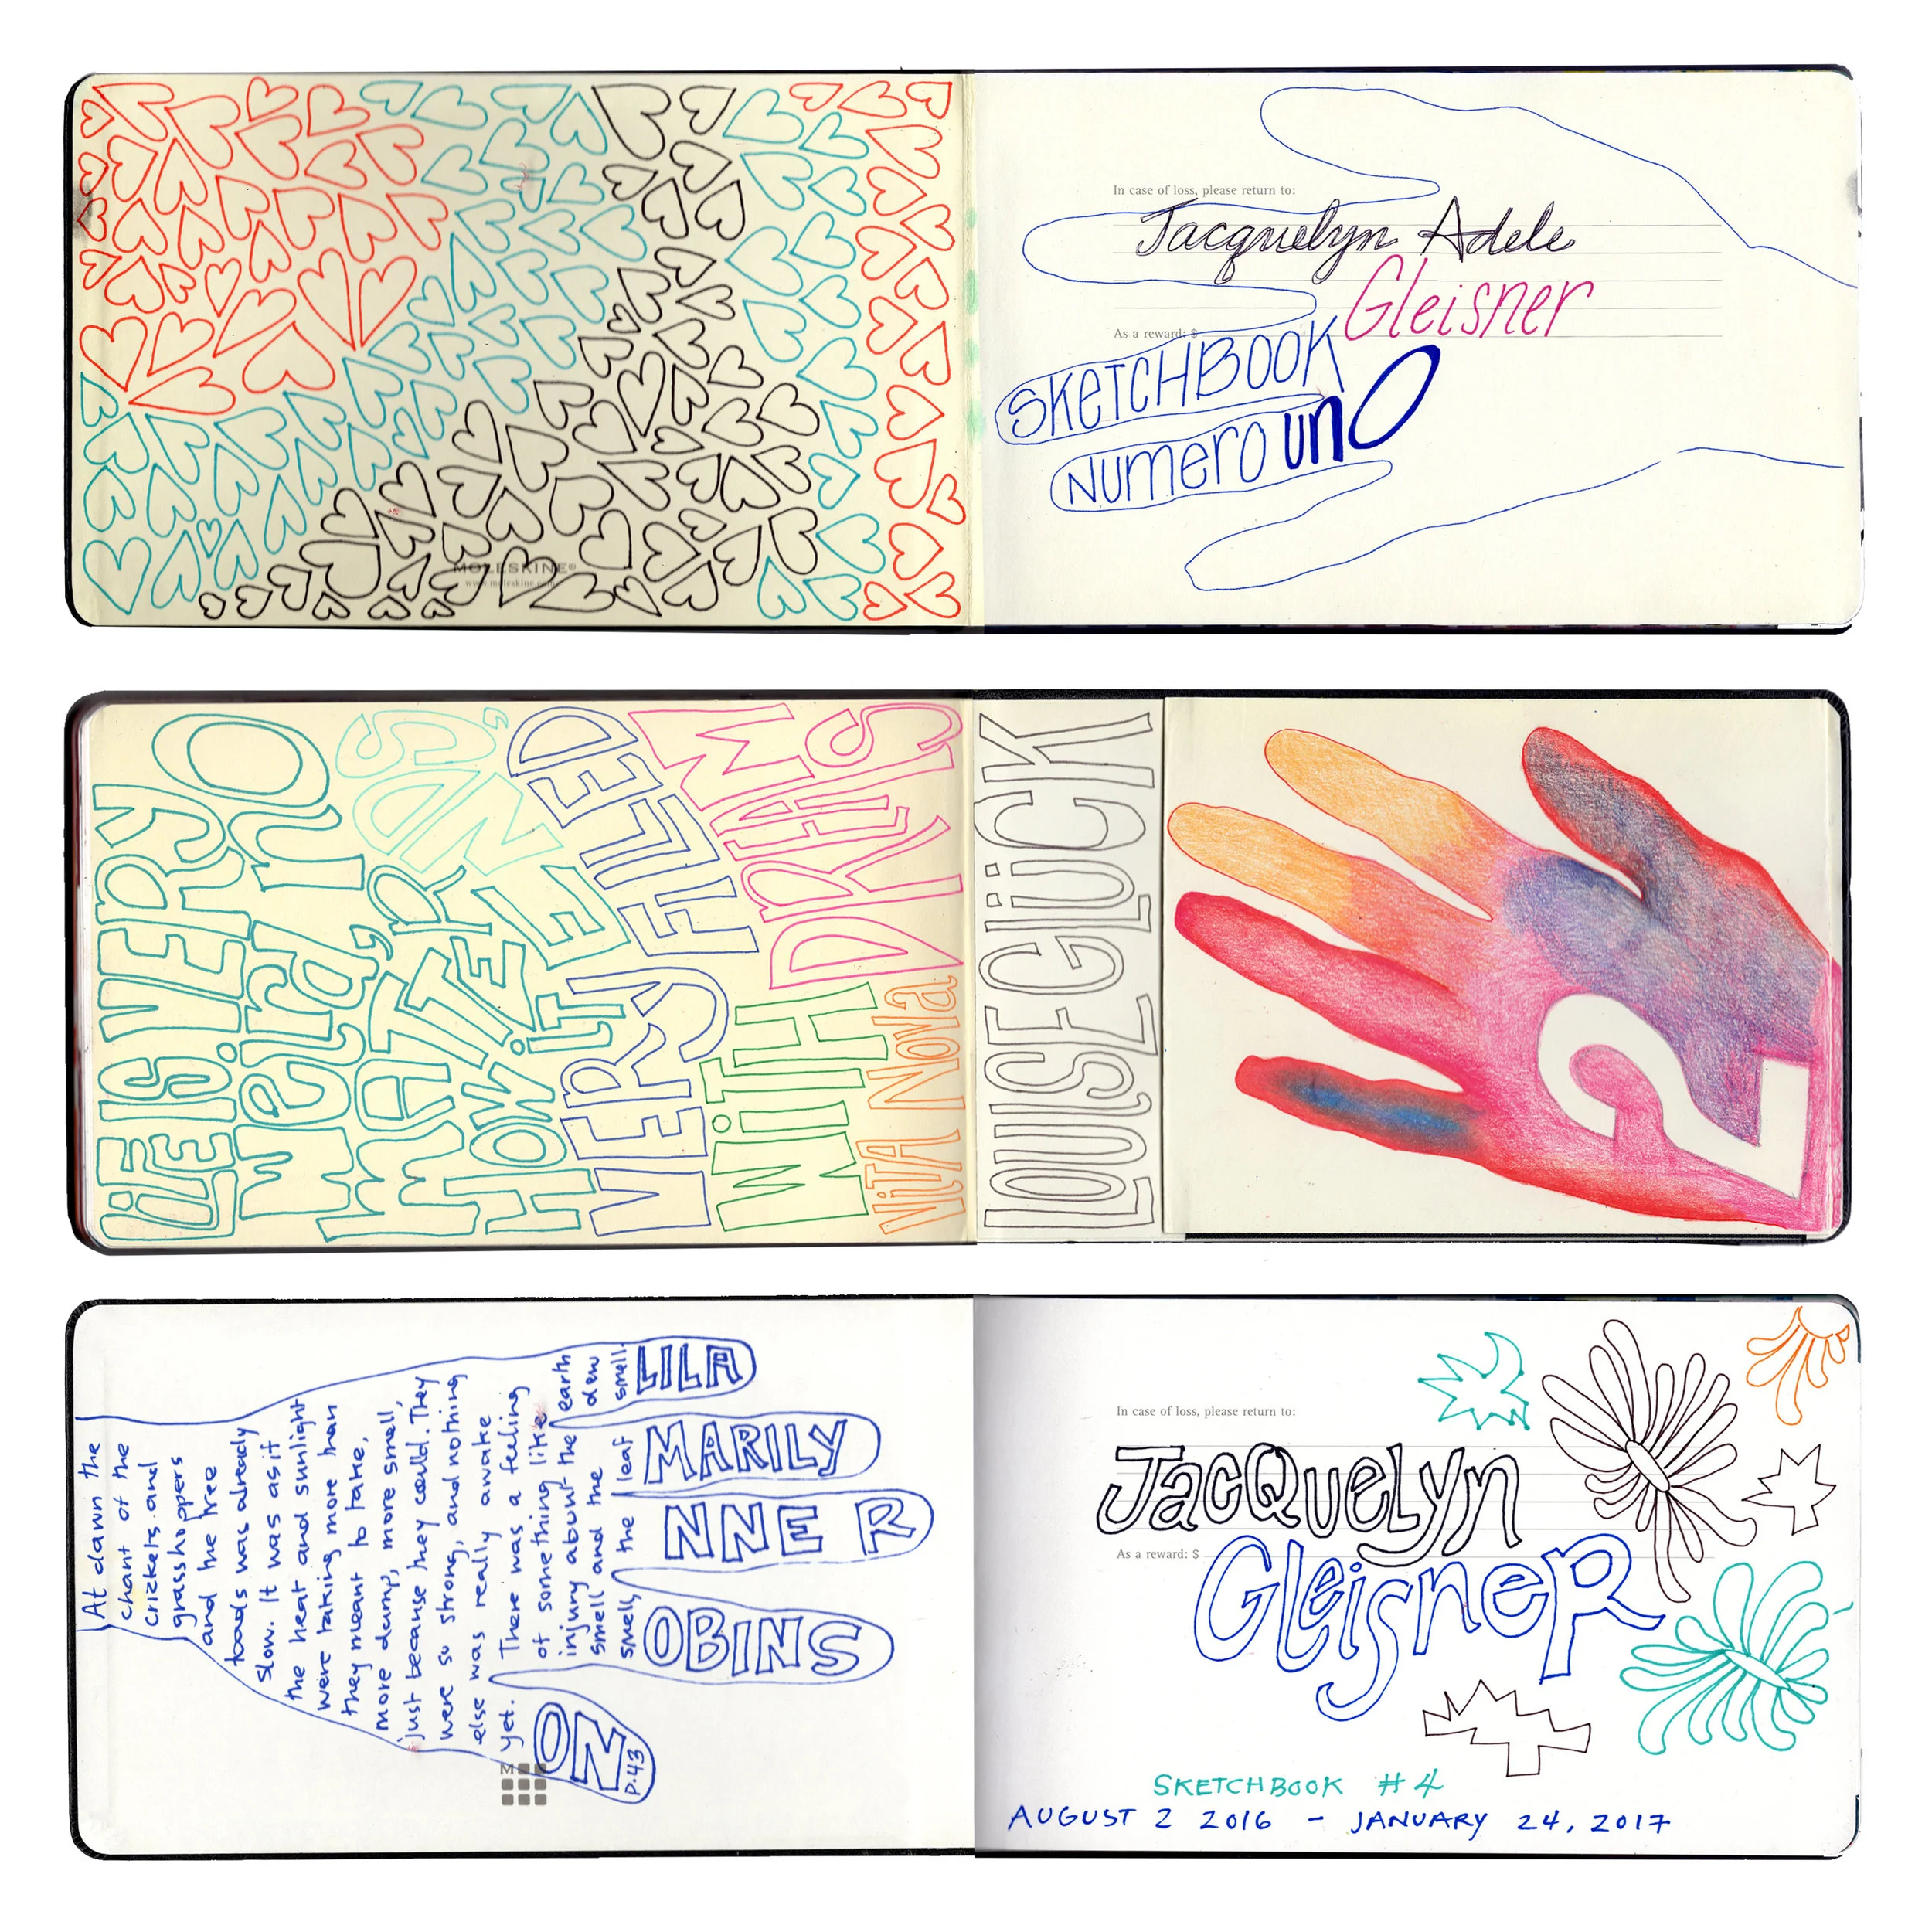 MOLESKINE®
www.moleskine.com
In case of loss, please return to:
Jacquelyn Adele
Gleisner
As a reward: $
SKETCHBOOK
Numero unO
LiFE IS VERY
weird, nO
MATTER
HOW iT ENDS,
VERY FILLED
WiTH DREAMS
ViTA NOVa
LOUISE GLÜCK
2
At dawn the
chant of the
crickets and
grasshoppers
and the tree
toads was already
slow. It was as if
the heat and sunlight
were taking more than
they meant to take,
more damp, more smell,
just because they could. They
were so strong, and nothing
else was really awake
yet. There was a feeling
of something like
injury about the earth
smell and the dew
smell, the leaf smell.
LILA
MARILY
NNE R
OBINS
ON
P.43
In case of loss, please return to:
JacQuelyn
As a reward: $
GleisneR
SKETCHBOOK #4
AUGUST 2 2016 - JANUARY 24, 2017